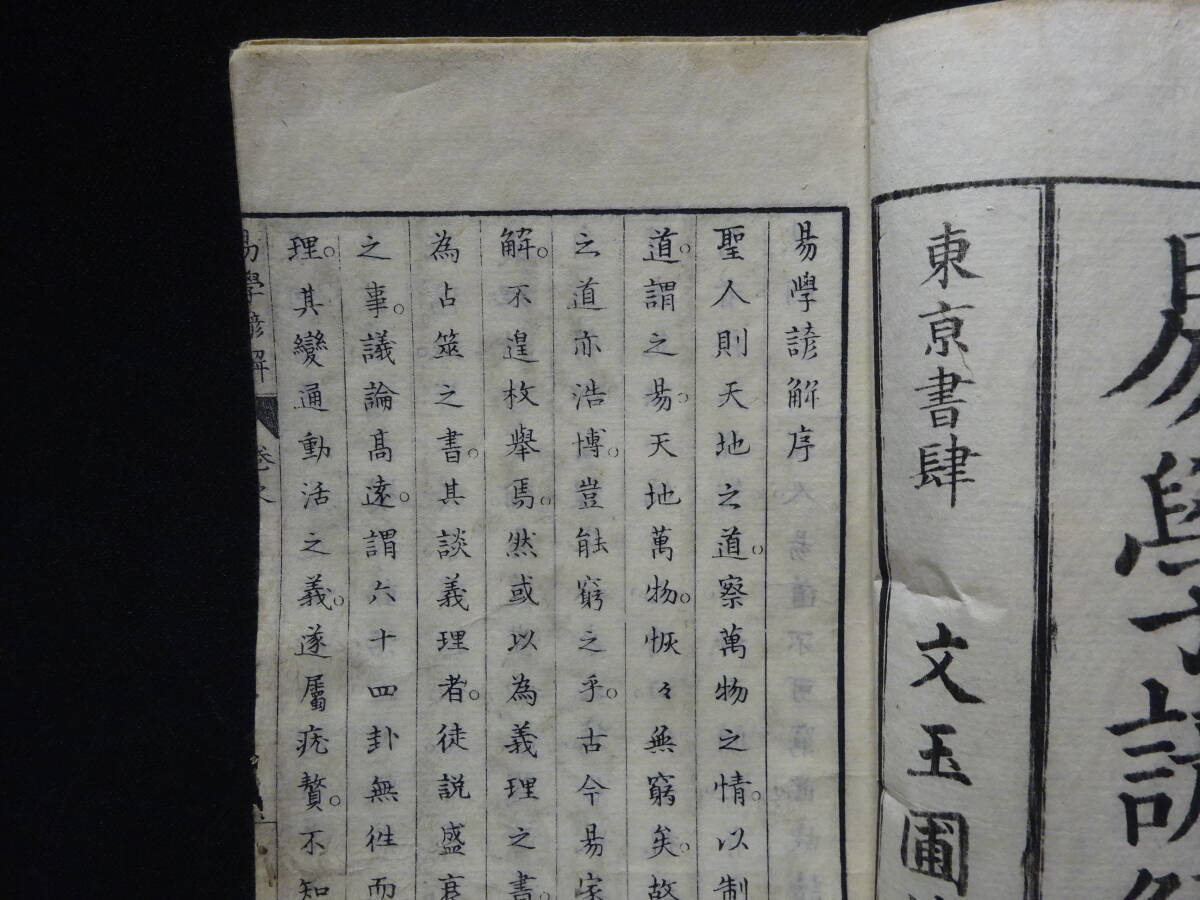 易學諺解
東京書肆 文玉圃
易學諺解序
聖人則天地之道。察萬物之情。以制
道。謂之易。天地萬物。恢々無窮矣。故
之道亦浩博。豈能窮之乎。古今易家
解。不遑枚舉焉。然或以為義理之書。
為占筮之書。其談義理者。徒説盛衰
之事。議論高遠。謂六十四卦無往而
理。其變通動活之義。遂屬疣贅。不知
易學諺解 卷之